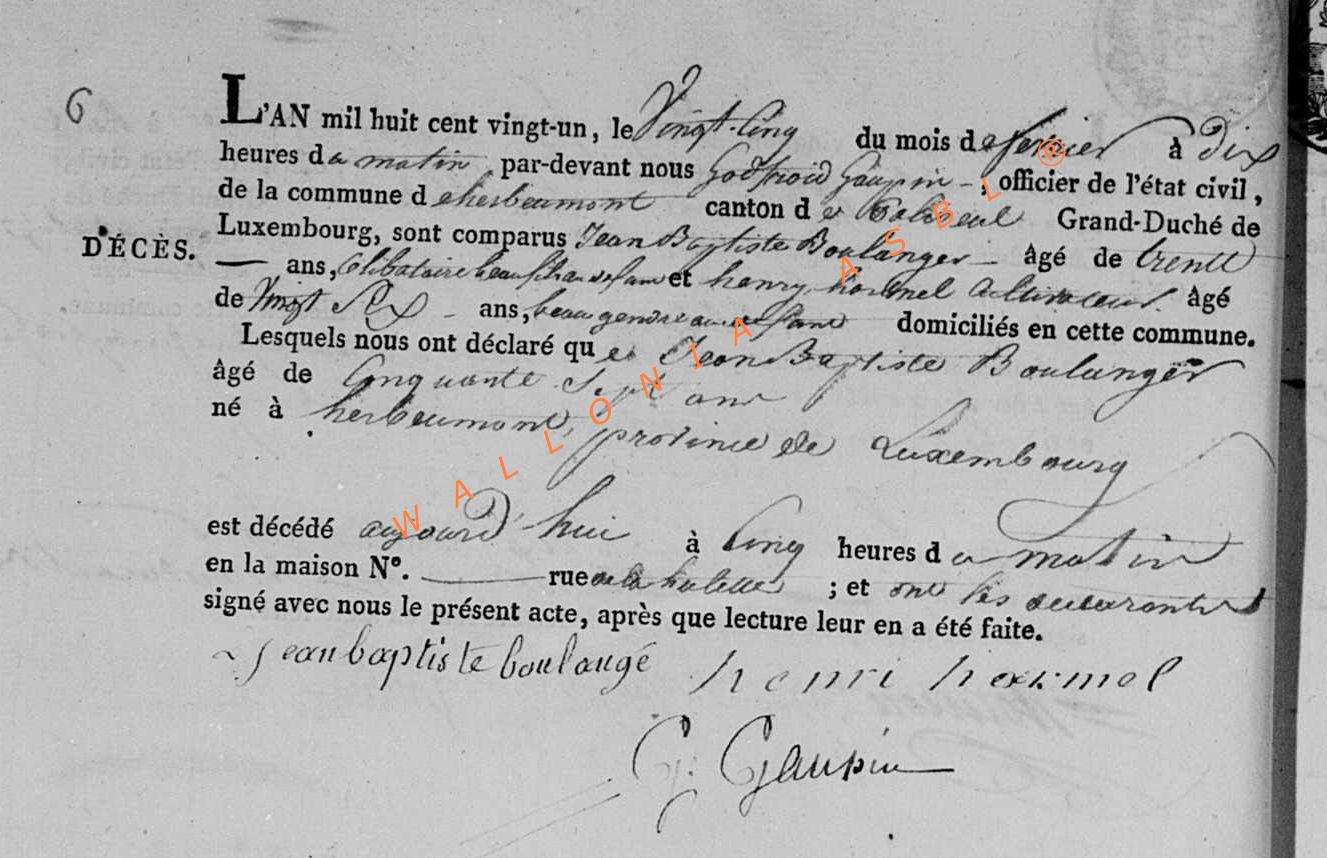 6
L'AN mil huit cent vingt-un, le Vingt-Cinq du mois de fevrier à dix
heures du matin, par-devant nous Godfroid Gaupin -, officier de l'état civil,
de la commune d eherbeumont canton d e Grand-Duché de
DÉCÈS.
Luxembourg, sont comparus Jean Baptiste Boulanger - âgé de trente
— ans, Celibataire et henry hormel Cultivateur âgé
de Vingt Six - ans, beau gendre domiciliés en cette commune.
Lesquels nous ont déclaré que Jean Baptiste Boulanger
âgé de Cinquante Sept ans
né à herbeumont, province de Luxembourg
est décédé aujourd'hui à Cinq heures du matin
en la maison N°. — rue de la ; et ont les declarants
signé avec nous le présent acte, après que lecture leur en a été faite.
jean baptiste boulangé henri hormel
G. Gaupin
WALLONIA ASBL ®